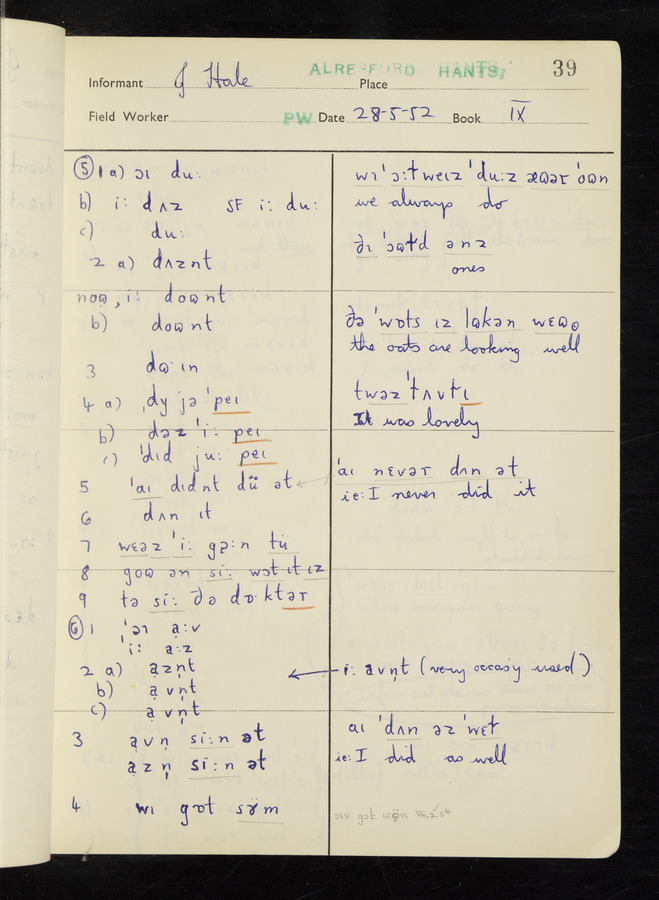 ALRESFORD HANTS. 39
Informant J Hale Place
Field Worker PW Date 28-5-52 Book IX
⑤ 1 a) ɔɪ du:
b) i: dʌz SF i: du:
c) du:
2 a) dʌznt
noʊ̣, i: doʊnt
b) doʊnt
3 dʊ·ɪn
4 a) ˌdy jə ˈpeɪ
b) dəz ˈi: peɪ
c) ˈdɪd ju: peɪ
5 ˈaɪ dɪdnt dü ət
6 dʌn ɪt
7 wɛəz ˈi: gɔ̣:n tü
8 goʊ ən si: wɔt ɪt ɪz
9 tə si: ðə dɒ·ktər
⑥ 1 ˌər ạ:v
i: ạ:z
2 a) ạzn̩t
b) ạvn̩t
c) ạvn̩t
3 ạvn̩ si:n ət
ạzn̩ si:n ət
4 wɪ gɒt sɤ̈m
wɪ ˈɔ:tweɪz ˈdu:z
we always do
ðɪ ənz
ones
ðə ˈwɒts ɪz lʊkən
the oats are looking well
twəz ˈtʌvtɪ
It was lovely
ˈaɪ nɛvər dʌn ət
ie: I never did it
i: ạvn̩t (very occas'y used)
aɪ ˈdʌn əz ˈwɛt
ie: I did as well